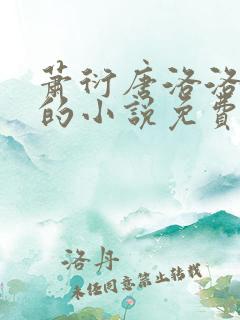 蕭衍唐洛洛
的小說免費
洛丹
未经同意禁止转载